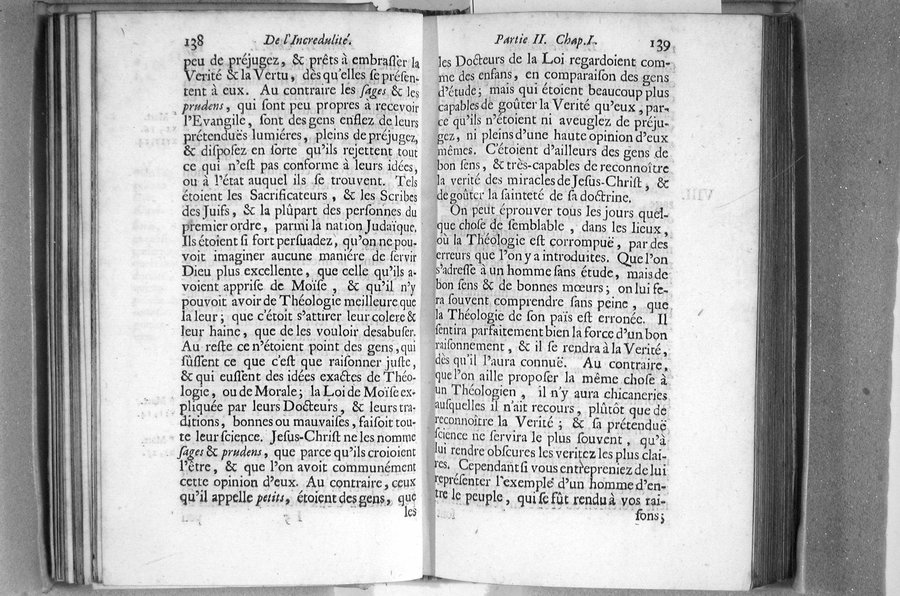 138 De l'Incredulité.
peu de préjugez, & prêts à embrasser la
Verité & la Vertu, dès qu'elles se présen-
tent à eux. Au contraire les sages & les
prudens, qui sont peu propres à recevoir
l'Evangile, sont des gens enflez de leurs
prétenduës lumiéres, pleins de préjugez,
& disposez en sorte qu'ils rejettent tout
ce qui n'est pas conforme à leurs idées,
ou à l'état auquel ils se trouvent. Tels
étoient les Sacrificateurs, & les Scribes
des Juifs, & la plûpart des personnes du
premier ordre, parmi la nation Judaïque.
Ils étoient si fort persuadez, qu'on ne pou-
voit imaginer aucune maniére de servir
Dieu plus excellente, que celle qu'ils a-
voient apprise de Moïse, & qu'il n'y
pouvoit avoir de Théologie meilleure que
la leur; que c'étoit s'atturer leur colere &
leur haine, que de les vouloir desabuser.
Au reste ce n'étoient point des gens, qui
sûssent ce que c'est que raisonner juste,
& qui eussent des idées exactes de Théo-
logie, ou de Morale; la Loi de Moïse ex-
pliquée par leurs Docteurs, & leurs tra-
ditions, bonnes ou mauvaises, faisoit tou-
te leur science. Jesus-Christ ne les nomme
sages & prudens, que parce qu'ils croioient
l'être, & que l'on avoit communément
cette opinion d'eux. Au contraire, ceux
qu'il appelle petits, étoient des gens, que
les
Partie II. Chap. I. 139
les Docteurs de la Loi regardoient com-
me des enfans, en comparaison des gens
d'étude; mais qui étoient beaucoup plus
capables de goûter la Verité qu'eux, par-
ce qu'ils n'étoient ni aveuglez de préju-
gez, ni pleins d'une haute opinion d'eux
mêmes. C'étoient d'ailleurs des gens de
bon sens, & très-capables de reconnoître
la verité des miracles de Jesus-Christ, &
de goûter la sainteté de sa doctrine.
On peut éprouver tous les jours quel-
que chose de semblable, dans les lieux,
où la Théologie est corrompuë, par des
erreurs que l'on y a introduites. Que l'on
s'adresse à un homme sans étude, mais de
bon sens & de bonnes mœurs; on lui fe-
ra souvent comprendre sans peine, que
la Théologie de son païs est erronée. Il
sentira parfaitement bien la force d'un bon
raisonnement, & il se rendra à la Verité,
dès qu'il l'aura connuë. Au contraire,
que l'on aille proposer la même chose à
un Théologien, il n'y aura chicaneries
ausquelles il n'ait recours, plûtôt que de
reconnoitre la Verité; & sa prétenduë
science ne servira le plus souvent, qu'à
lui rendre obscures les veritez les plus clai-
res. Cependant si vous entrepreniez de lui
représenter l'exemple d'un homme d'en-
tre le peuple, qui se fût rendu à vos rai-
sons;